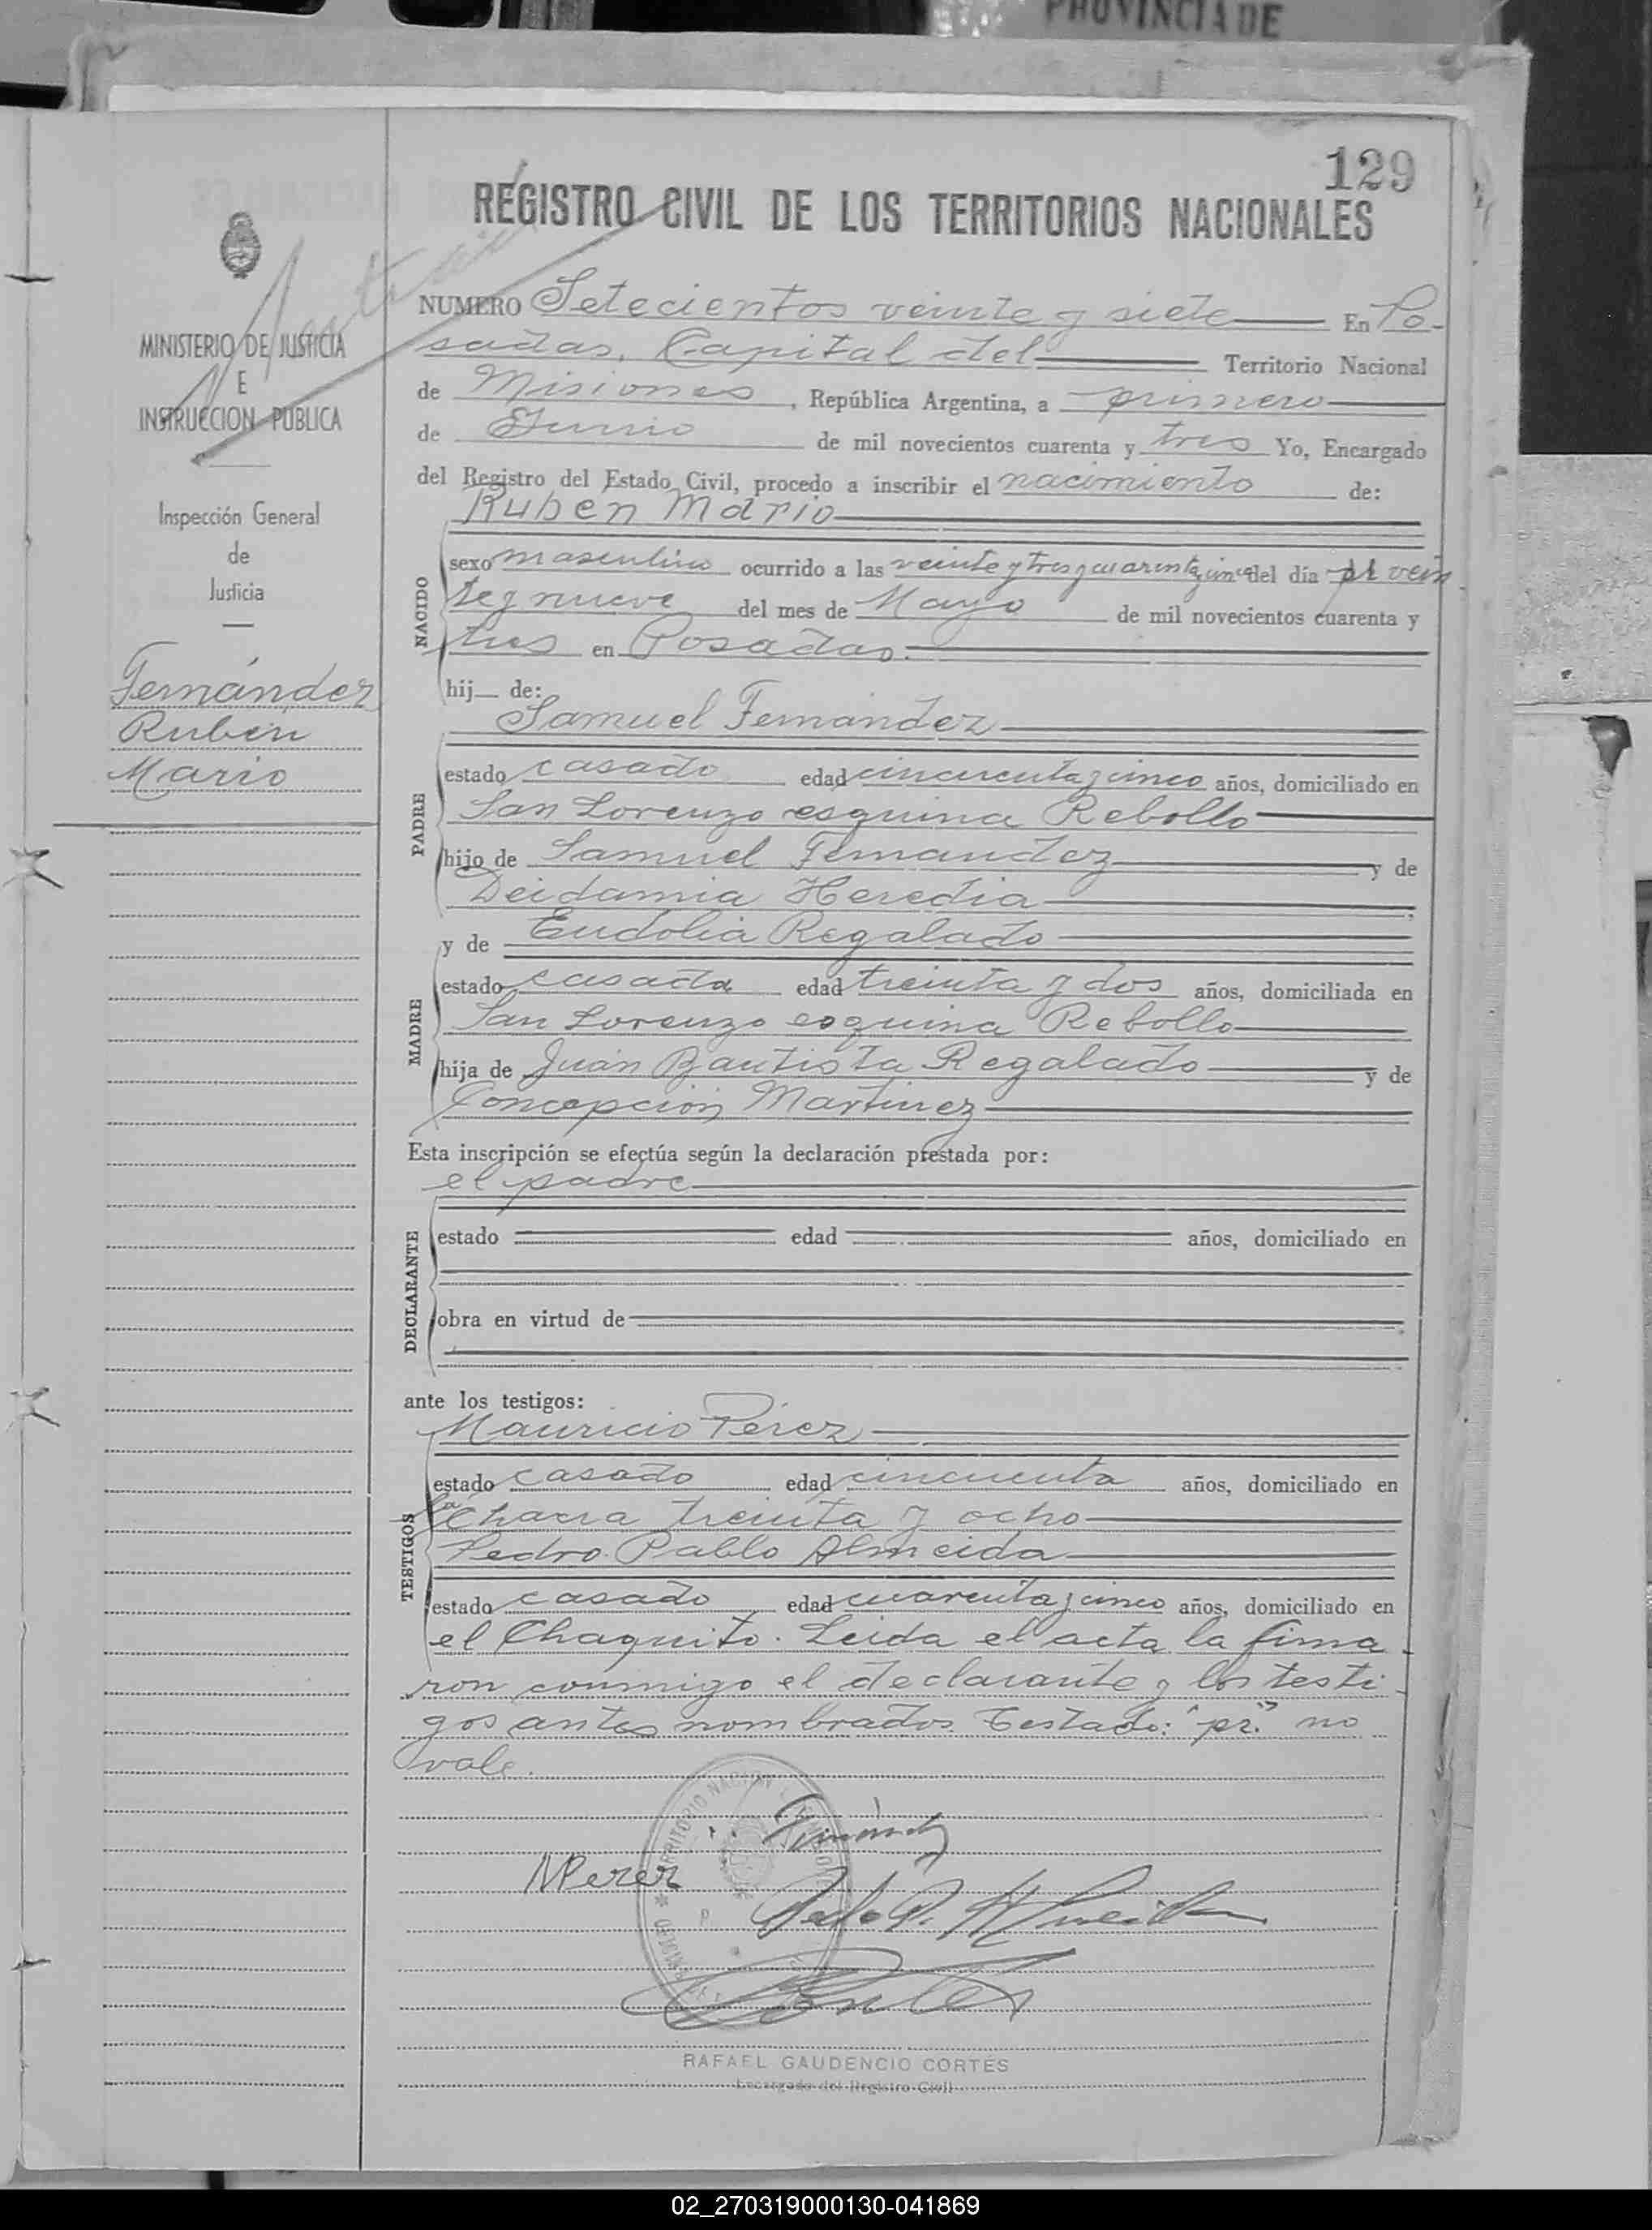 PROVINCIA DE
129
REGISTRO CIVIL DE LOS TERRITORIOS NACIONALES
MINISTERIO DE JUSTICIA
E
INSTRUCCION PUBLICA
Inspección General
de
Justicia
Fernández
Rubén
Mario
NUMERO Setecientos veinte y siete En Po-
sadas, Capital del Territorio Nacional
de Misiones, República Argentina, a primero
de Junio de mil novecientos cuarenta y tres Yo, Encargado
del Registro del Estado Civil, procedo a inscribir el nacimiento de:
Rubén Mario
NACIDO
sexo masculino ocurrido a las veinte y tres y cuarenta del día vein
te y nueve del mes de Mayo de mil novecientos cuarenta y
tres en Posadas.
hij de:
Samuel Fernández
PADRE
estado casado edad cincuenta y cinco años, domiciliado en
San Lorenzo esquina Rebollo
hijo de Samuel Fernandez y de
Deidamia Heredia
y de Eudolia Regalado
MADRE
estado casada edad treinta y dos años, domiciliada en
San Lorenzo esquina Rebollo
hija de Juan Bautista Regalado y de
Concepción Martinez
Esta inscripción se efectúa según la declaración prestada por:
el padre
DECLARANTE
estado edad años, domiciliado en
obra en virtud de
ante los testigos:
Mauricio Pérez
TESTIGOS
estado casado edad cincuenta años, domiciliado en
la Chacra treinta y ocho
Pedro Pablo Almeida
estado casado edad cuarenta y cinco años, domiciliado en
el Chaquito. Leida el acta la firma-
ron conmigo el declarante y los testi-
gos antes nombrados. Testado: "pr." no
vale.
MPerez
RAFAEL GAUDENCIO CORTÉS
Encargado del Registro Civil
02_270319000130-041869